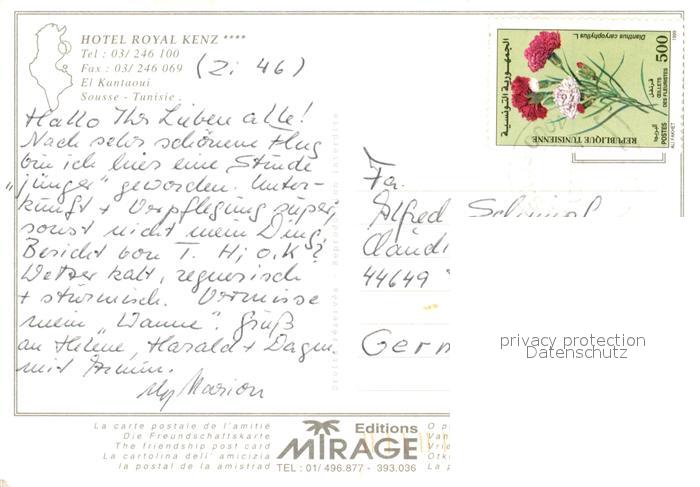 HOTEL ROYAL KENZ ****
Tel : 03/ 246 100
Fax : 03/ 246 069
(Zi 46)
El Kantaoui
Sousse - Tunisie
Hallo Ihr Lieben alle!
Nach sehr schönem Flug
bin ich hier eine Stunde
„jünger“ geworden. Unter-
kunft + Verpflegung super,
sonst nicht mein Ding.
Bericht von T. H. o.k?
Wetter kalt, regnerisch
+ stürmisch. Vermisse
mein „Wanne“. Gruß
an Helene, Harald + Dagm.
mit Armin.
Marion
Reproduction interdite
Fa.
Alfred
Claudi
44649
Germ
الجمهورية التونسية
Dianthus caryophyllus L.
500
1999
قرنفل
ŒILLETS
DES FLEURISTES
REPUBLIQUE TUNISIENNE
POSTES
البريد
ALI FAKHET
privacy protection
Datenschutz
La carte postale de l'amitié
Die Freundschaftskarte
The friendship post card
La cartolina dell' amicizia
la postal de la amistrad
Editions
MIRAGE
TEL : 01/ 496.877 - 393.036